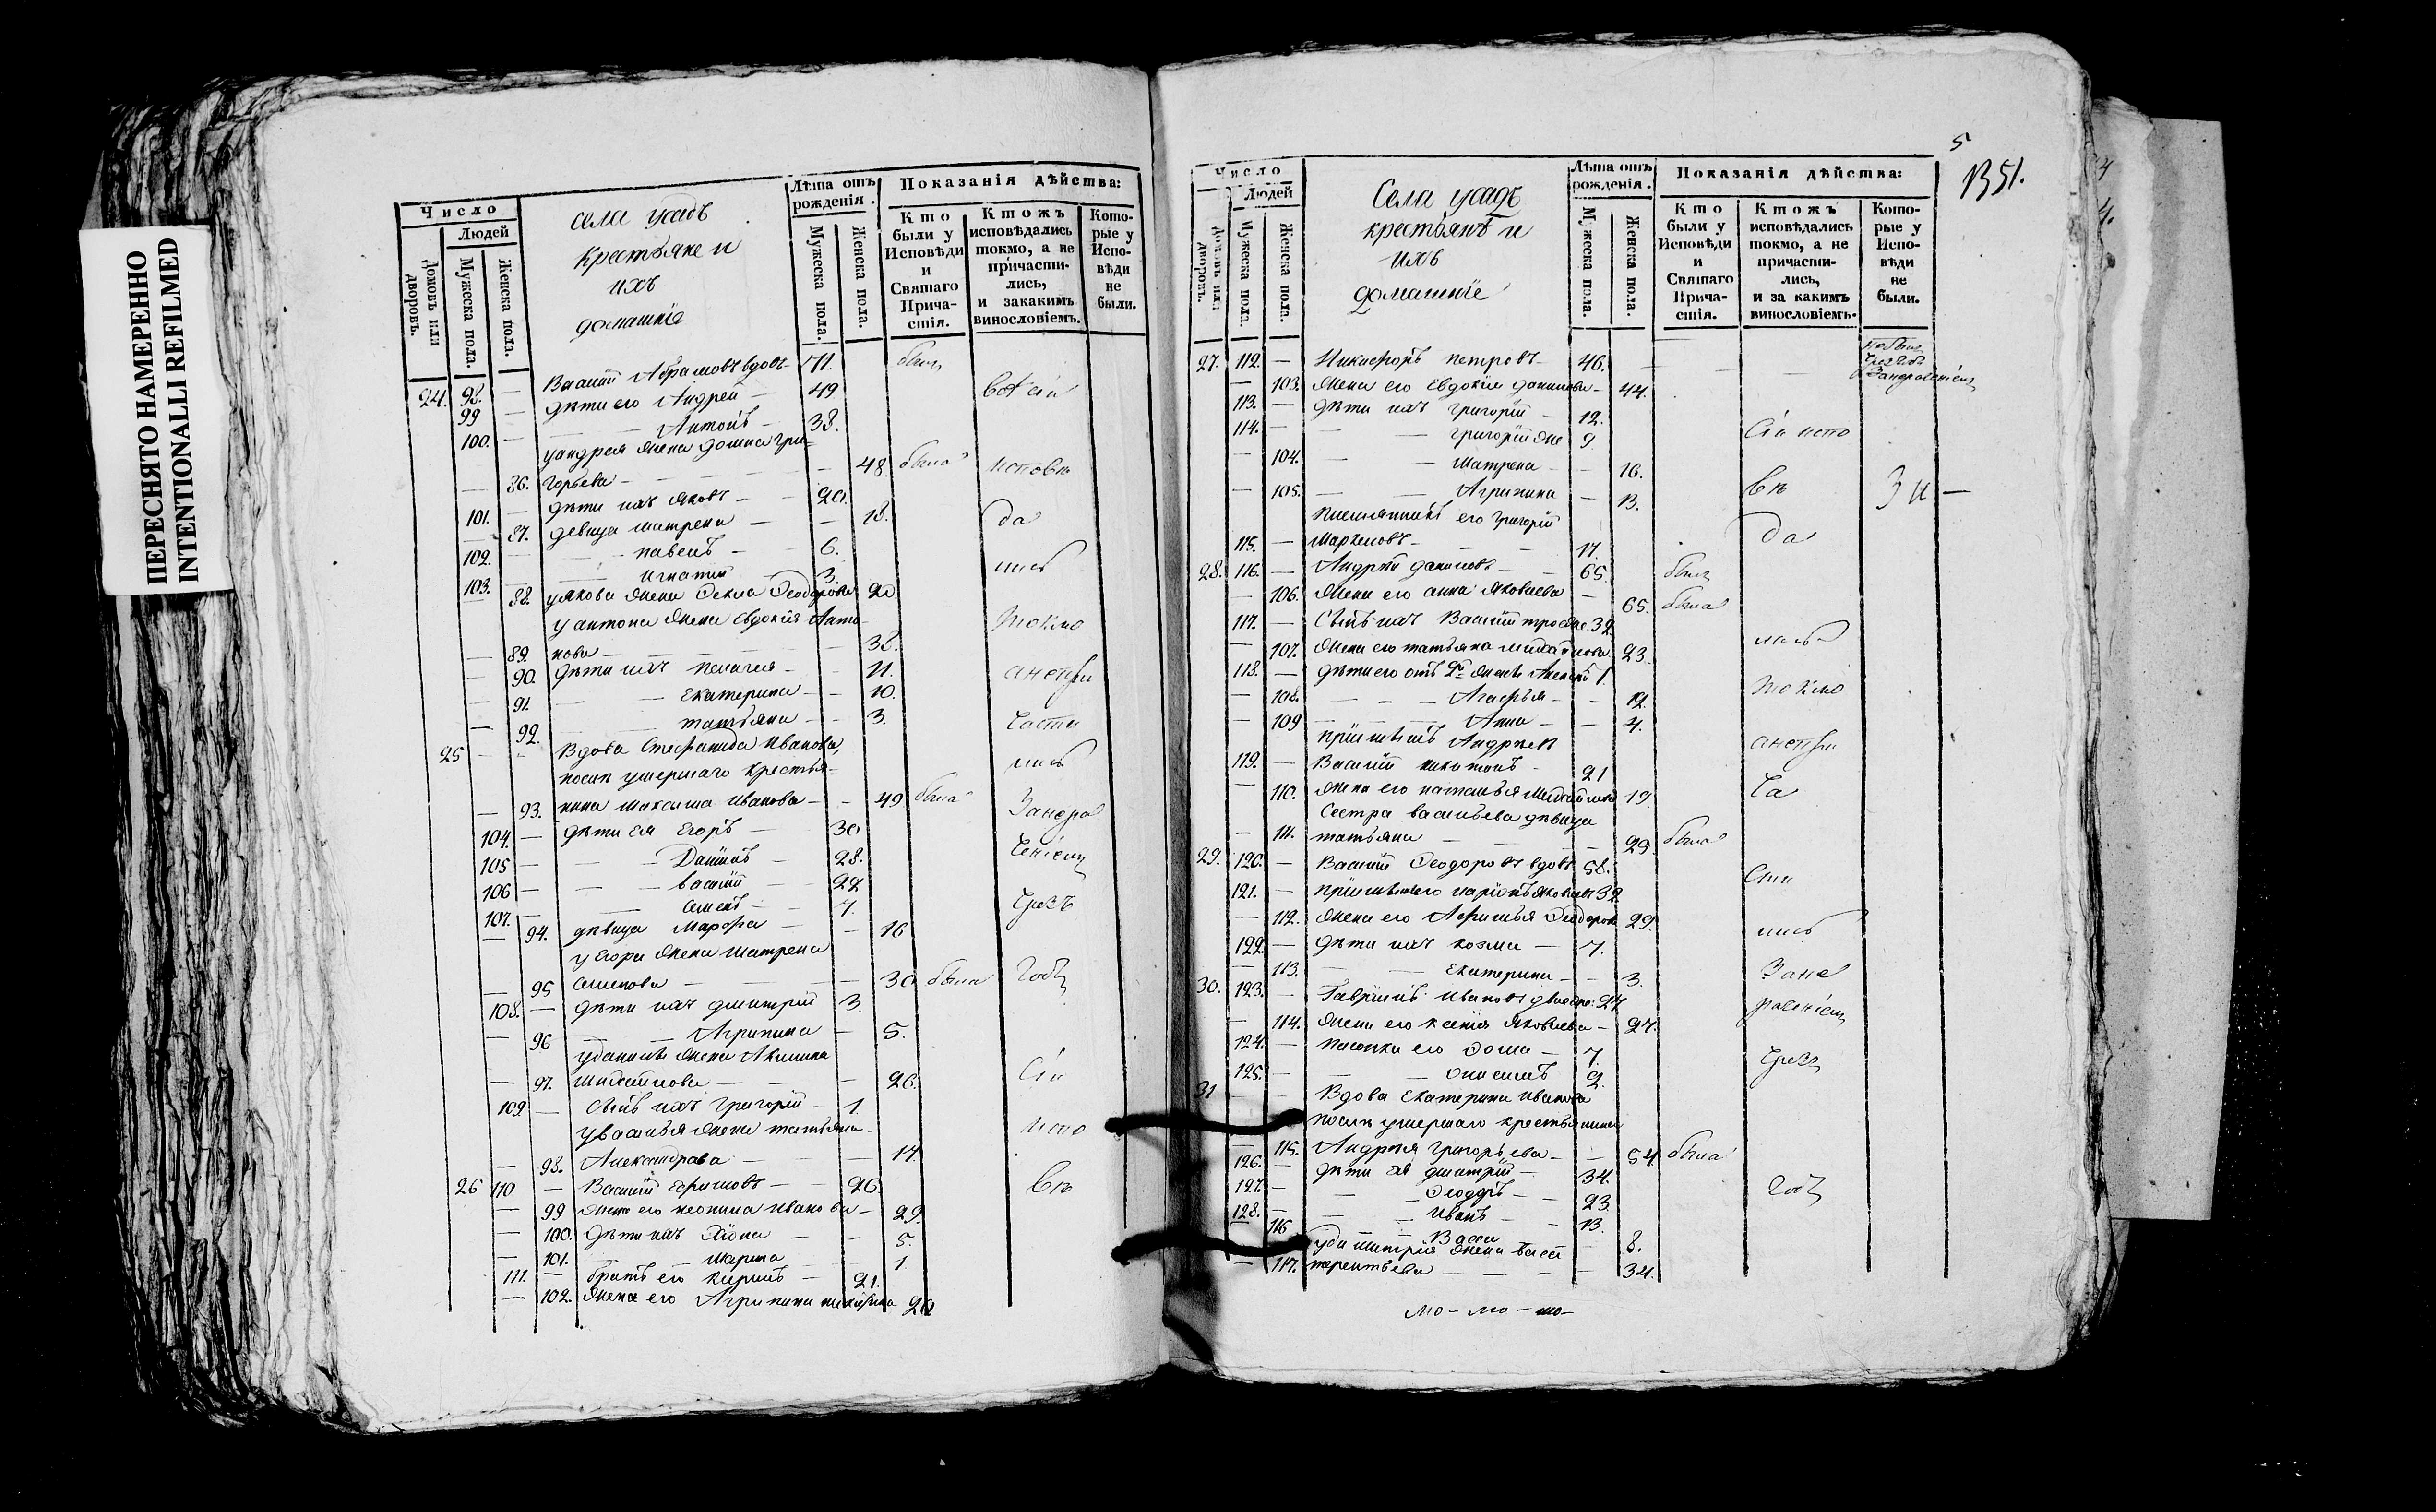 ПЕРЕСНЯТО НАМЕРЕННО
INTENTIONALLI REFILMED
Число
Людей
Домовъ или дворовъ.
Мужеска пола.
Женска пола.
села усадъ
крестьяне и
ихъ
домашніе
Лѣта отъ рожденія.
Мужеска пола.
Женска пола.
Показанія дѣйства:
Кто были у Исповѣди и Святаго Причастія.
Ктожъ исповѣдались токмо, а не причастились, и закакимъ винословіемъ.
Которые у Исповѣди не были.
24. 98. — Василій Абрамовъ вдовъ 71. былъ
99 — дѣти его Андрей — 49
100. — Антонъ — 38.
уандрея жена домна гри=
— 86. горьева — 48 была
101. — дѣти ихъ яковъ — 20.
— 87. девица матрена — 18.
102. — павелъ — 6.
103. — игнатій 3.
— 88. уякова жена Ѳекла Ѳеодорова 20
у антона жена Евдокія Анто-
— 89. нова — 38.
— 90. дѣти ихъ пелагея — 11.
— 91. — Екатерина — 10.
— 92. татьяна — 3.
25 — Вдова Стефанида Иванова,
послѣ умершаго крестья=
— 93. нина максима Иванова — 49 была
104. — дѣти ея Егоръ — 30
105 — Даніилъ — 28.
106 — василій — 22
107. — семенъ — 7.
— 94. дѣвица Марфа — 16
у егора жена матрена
— 95 семенова — 30 была
108. — дѣти ихъ дмитрій 3.
— 96 — Агрипина — 5.
уданилы жена Акилина
— 97. михайлова — 26.
109. — сынъ ихъ григорій — 1.
увасилья жена татьяна
— 98. Александрова — 17.
26 110 — Василій Ефимовъ — 26.
— 99 жена его неонила иванова — 29.
— 100. дѣти ихъ Хіона — 5.
— 101. — марина 1
111. — братъ его кирилъ — 21.
— 102. жена его Агрипина 20
всѣ сіи
исповѣ
да
лись
токмо
а не при
части
лись
Занера
ченіемъ
чрезъ
годъ
Сіи
испо
вѣ
5
1351.
Число
Людей
Домовъ или дворовъ.
Мужеска пола.
Женска пола.
Села усадъ
крестьянѣ и
ихъ
домашніе
Лѣта отъ рожденія.
Мужеска пола.
Женска пола.
Показанія дѣйства:
Кто были у Исповѣди и Святаго Причастія.
Ктожъ исповѣдались токмо, а не причастились, и за какимъ винословіемъ.
Которые у Исповѣди не были.
27. 112. — Никифоръ петровъ — 46.
— 103. жена его Евдокія данилова — 44.
113. — дѣти ихъ григорій — 12.
114. — григорій же 9
— 104. — матрена — 16.
— 105. — Агрипина — 13.
племянникъ его григорій
115. — маркеловъ — 17.
28. 116. — Андрей даниловъ — 65. былъ
— 106. жена его анна яковлева — 65. была
117. — Сынъ ихъ Василій 32
— 107. жена его татьяна михайлова 23.
118. — дѣти его отъ 2й жены Алексѣй 1.
— 108. — Агафья — 12
— 109 — Анна — 4.
пріимышъ Андреевъ
119. — Василій никитинъ 21
— 110. жена его наталья 19.
Сестра васильева дѣвица
— 111. татьяна — 29 была
29. 120. — Василій Ѳеодоровъ вдовъ 58.
121. — пріимышъ его ларіонъ яковлевъ 32
— 112. жена его Афимья Ѳеодорова 29.
122. — дѣти ихъ козма — 7.
— 113. — Екатерина — 3.
30. 123. — Гавріилъ ивановъ 27
— 114. жена его ксенія яковлева — 27.
124. — пасынки его Ѳома — 7.
125. — онисимъ 2.
31 — Вдова Екатерина иванова
послѣ умершаго крестьянина
— 115. Андрея григорьева — 54. была
126. — дѣти ея дмитрій — 34.
127. — Ѳеодоръ — 23.
128. — иванъ — 13.
116 — Васса 8.
удмитрія жена васса
— 117. терентьева — 34.
Сіи испо
вѣ
да
лись
токмо
а не при
ча
сти
лись
Зане
раченіемъ
чрезъ
годъ
3 и —
мо — мо — мо —